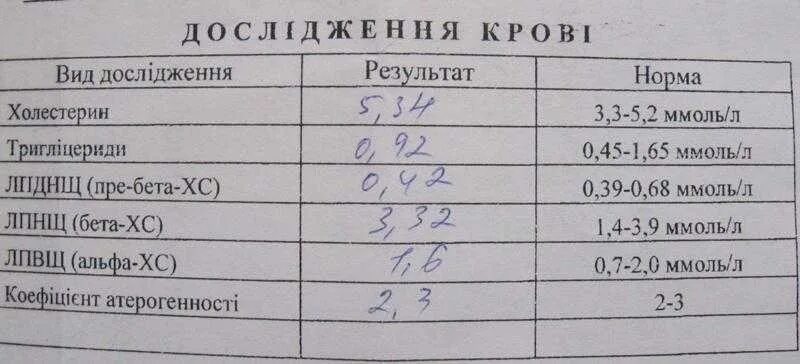 ДОСЛІДЖЕННЯ КРОВІ
Вид дослідження Результат Норма
Холестерин 5,34 3,3-5,2 ммоль/л
Тригліцериди 0,92 0,45-1,65 ммоль/л
ЛПДНЩ (пре-бета-ХС) 0,42 0,39-0,68 ммоль/л
ЛПНЩ (бета-ХС) 3,32 1,4-3,9 ммоль/л
ЛПВЩ (альфа-ХС) 1,6 0,7-2,0 ммоль/л
Коефіцієнт атерогенності 2,3 2-3